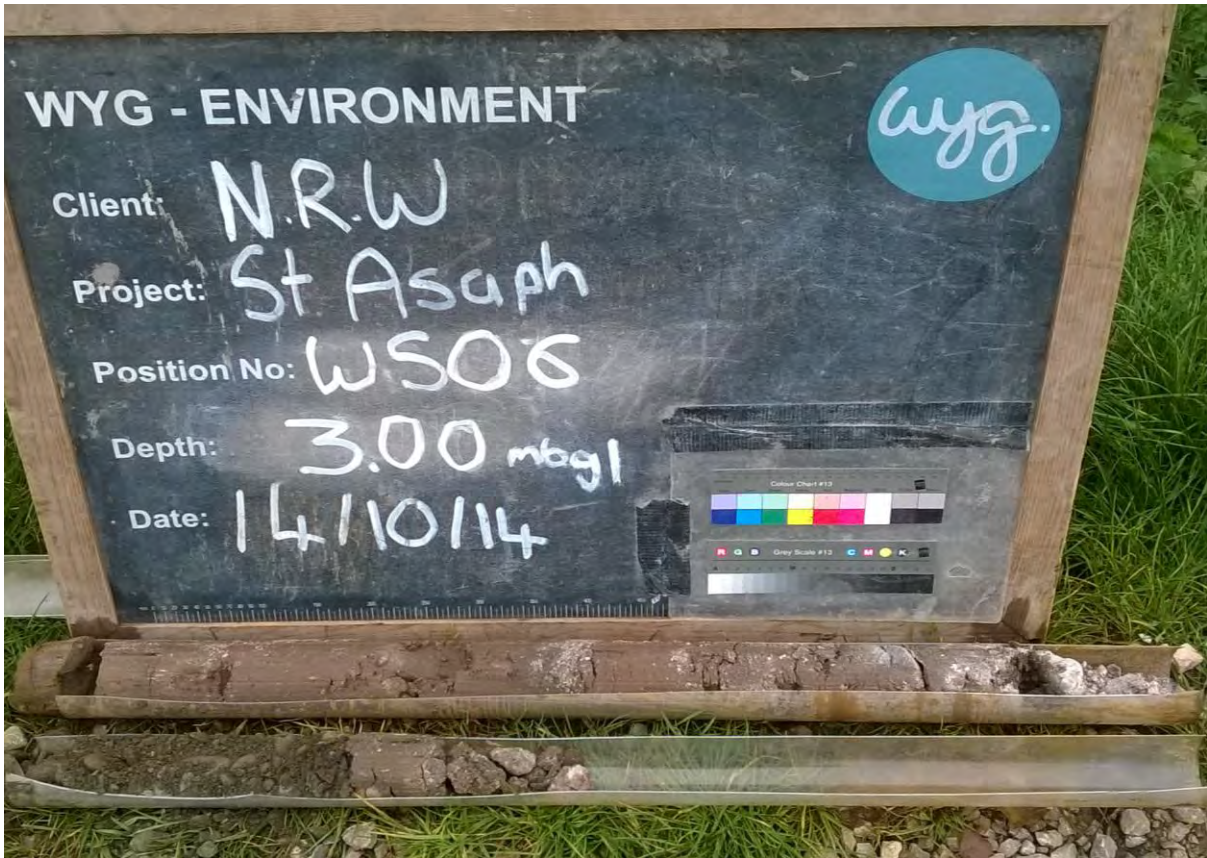 WYG - ENVIRONMENT
wyg.
Client: N.R.W
Project: St Asaph
Position No: WS06
Depth: 3.00 mbgl
Date: 14/10/14
Colour Chart #13
R G B Grey Scale #13 C M Y K